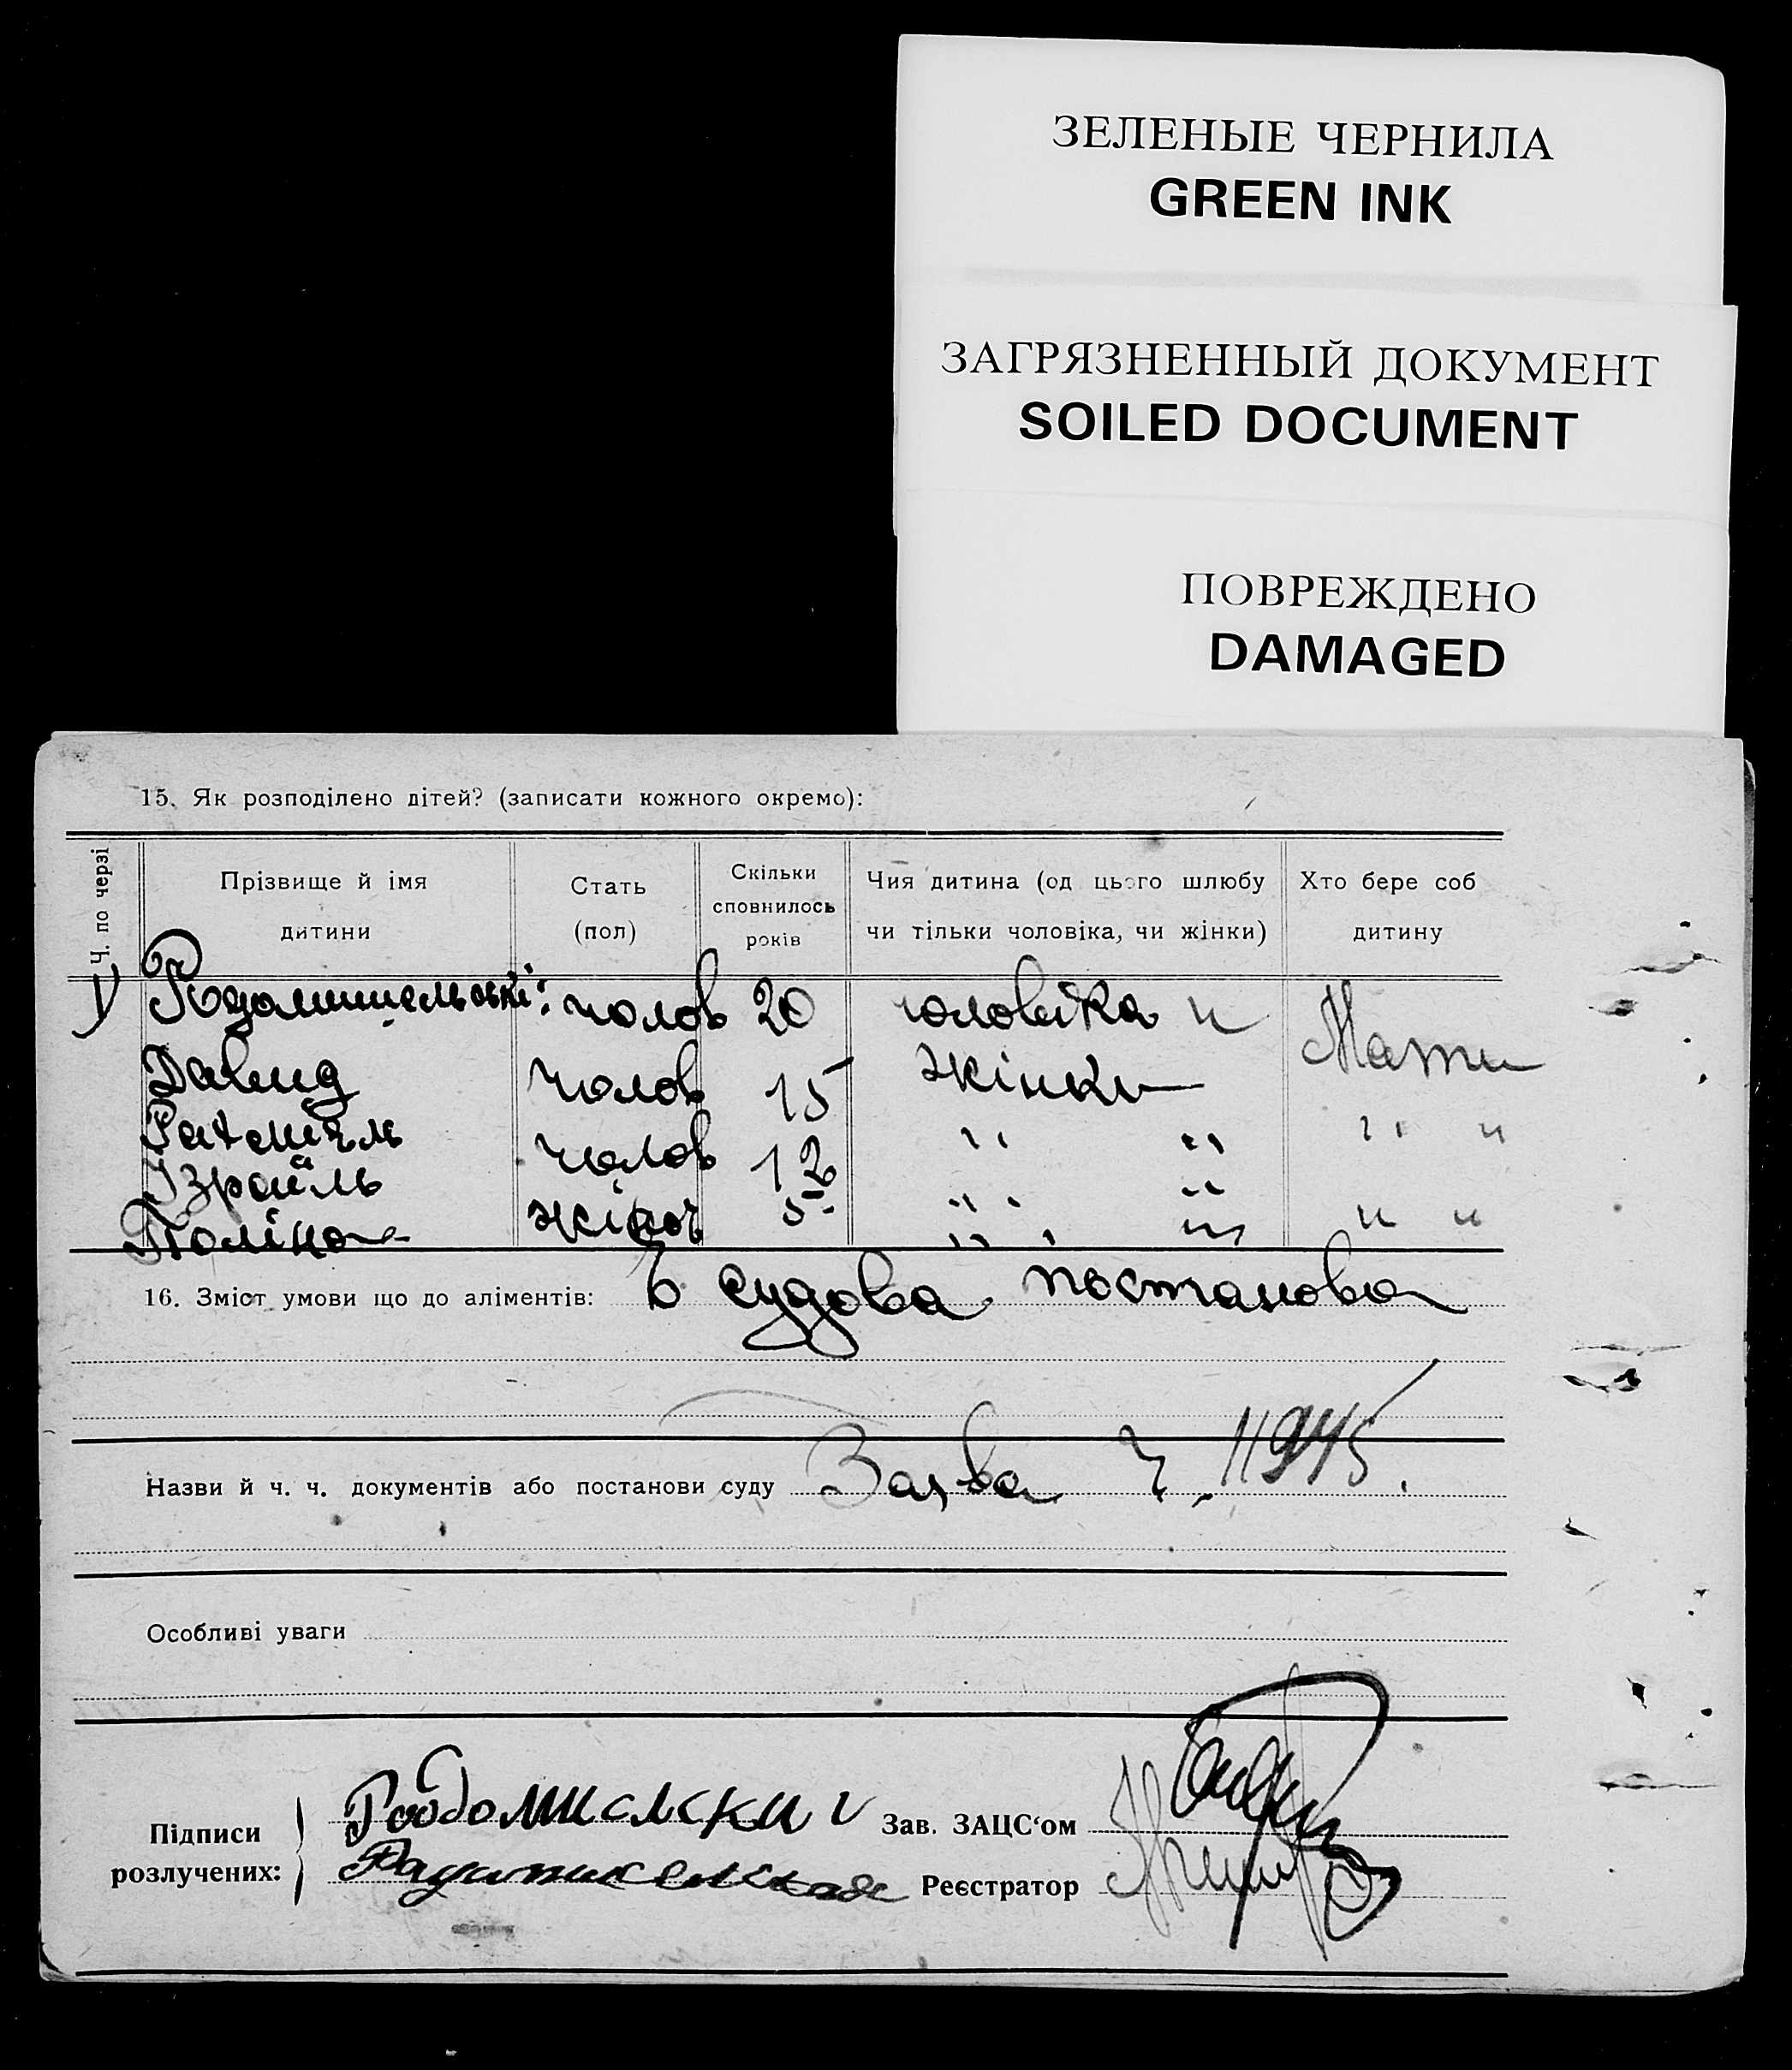 ЗЕЛЕНЫЕ ЧЕРНИЛА
GREEN INK
ЗАГРЯЗНЕННЫЙ ДОКУМЕНТ
SOILED DOCUMENT
ПОВРЕЖДЕНО
DAMAGED
15. Як розподілено дітей? (записати кожного окремо):
Ч. по черзі
Прізвище й імя дитини
Стать (пол)
Скільки сповнилось років
Чия дитина (од цього шлюбу чи тільки чоловіка, чи жінки)
Хто бере соб дитину
чолов 20 чоловіка и Мати
Давид чолов 15 жінки
чолов 12 " " " "
Ізраїль " "
Поліна жіноч 5 " " " "
16. Зміст умови що до аліментів: Є судова постанова
Назви й ч. ч. документів або постанови суду Заява Ч. 11945.
Особливі уваги
Підписи розлучених:
Зав. ЗАЦС‘ом
Реєстратор